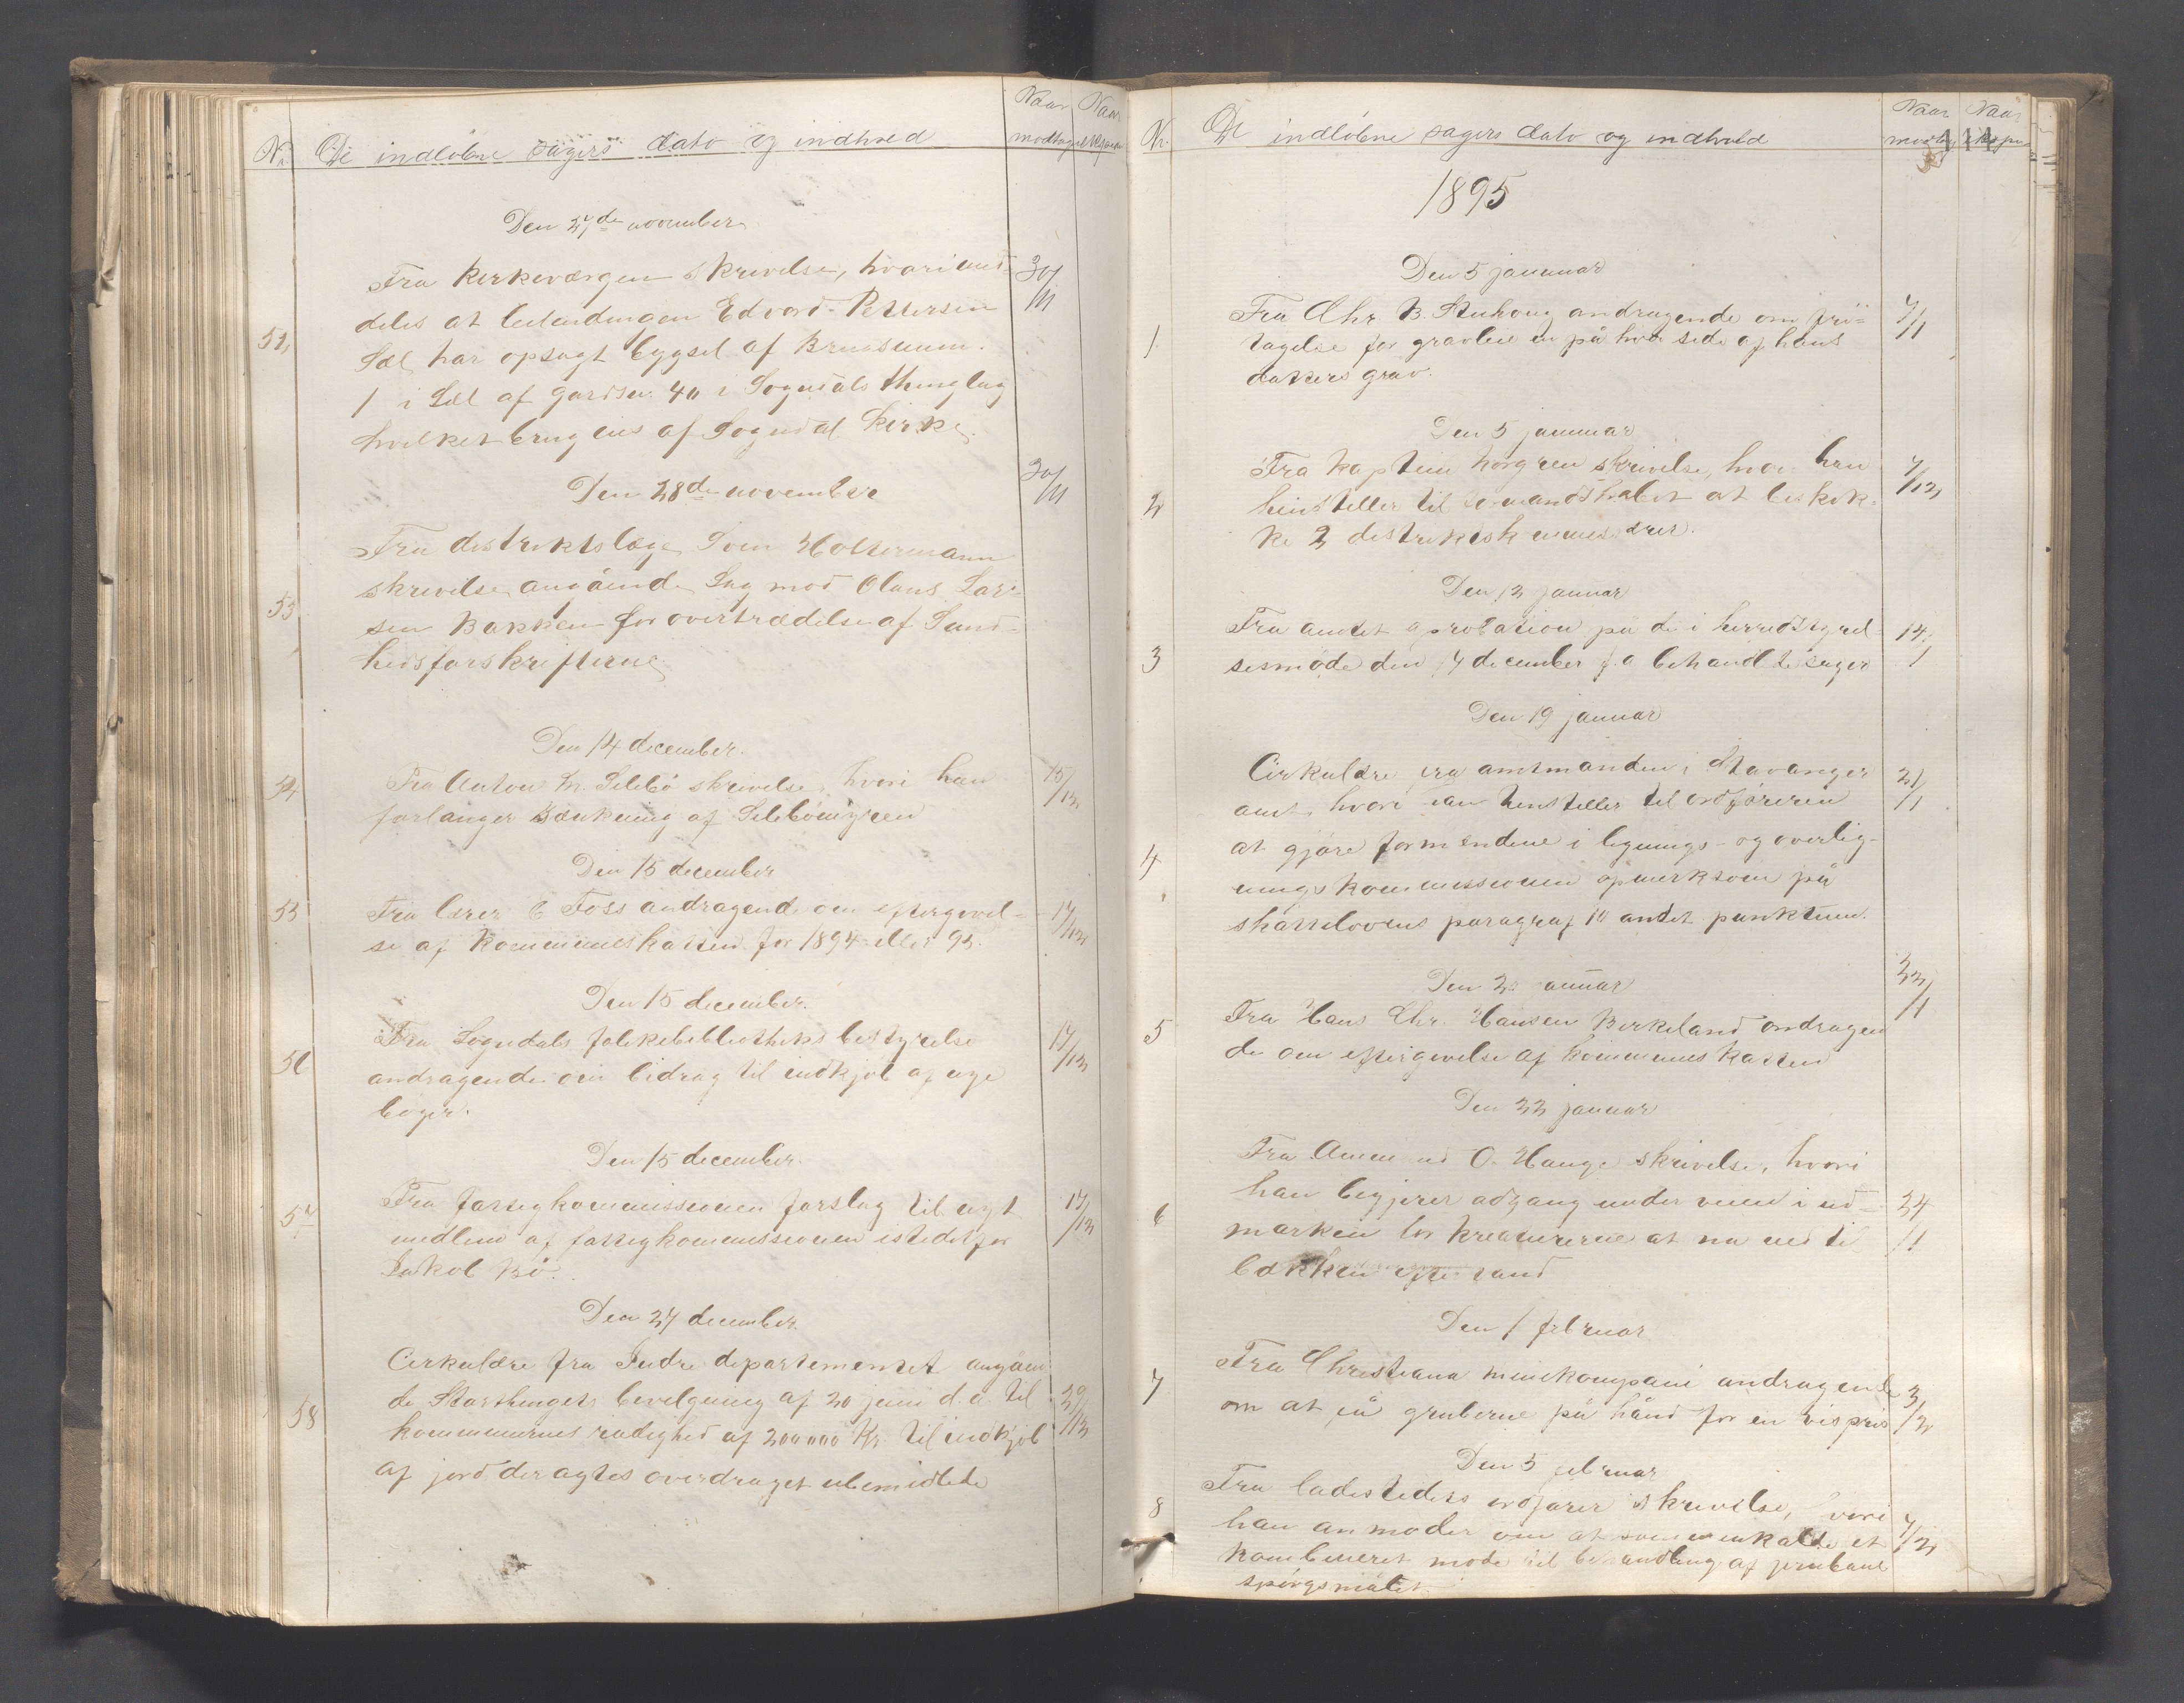 Nr. De indløbne sagers dato og indhold Naar modtaget Naar
Den 27de november
Fra kirkeværgen skrivelse, hvori med- 30/11
deles at leilændingen Edvard Pettersen
52, Sæl har opsagt bygsel af Bruasnum.
1 i Sæl af gardsn. 40 i Sogndals thinglag
hvilket brug eies af Sogndal kirke.
Den 28de november 30/11
Fra distriktslæge Holtermann
skrivelse angående Sag mod Olaus Lar-
53 sen Bakken for overtrædelse af Sund-
hedsforskrifterne
Den 14 december.
54 Fra Anton M. Selebø skrivelse, hvori han 15/12
forlanger af Selebømyren
Den 15 december
55 Fra lærer E Foss andragende om eftergivel- 17/12
se af kommuneskatten for 1894 eller 95.
Den 15 december.
Fra Sogndals folkebibliotheks bestyrelse 17/12
56 andragende om bidrag til indkjøb af nye
bøger.
Den 15 december.
57 Fra fattigkommissionen forslag til nyt 17/12
medlem af fattigkommissionen istedetfor
Jakob Bø.
Den 27 december.
Cirkulære fra Indredepartementet angåen
de Storthingets bevilgning af 20 juni d.a. til 29/12
58 kommunernes rådighed af 200000 Kr. til indkjøb
af jord, der agtes overdraget ubemidlede
Nr. De indløbne sagers dato og indhold Naar modtag Naar exspe 111
1895
Den 5 januuar
Fra Chr. B. Stuhoug andragende om fri- 7/1
1. tagelse for gravleie en på hver side af hans
datters grav.
Den 5 januuar
Fra kaptein Norgren skrivelse, hvor han 7/12
2 henstiller til formandskabet at beskik-
ke 2 distriktskommissærer.
Den 12 januar
Fra amtet aprobation på de i herredstyrel- 14/1
3 sesmøde den 14 december f.a behandlede sager
Den 19 januar
Cirkulære fra amtmanden i Stavanger 21/1
amt, hvori han henstiller til ordføreren
4 at gjøre formændene i lignings- og overlig-
ningskommissionen opmerksom på
skattelovens paragraf 10 andet punktum.
Den januar 22/1
5 Fra Hans Chr. Hansen Birkeland andragen
de om eftergivelse af kommuneskatten
Den 22 januar
Fra O. Hauge skrivelse, hvori
han begjærer adgang under veien i ud- 24/1
6 marken for kreaturerne at nå ned til
bækken efter vand
Den 1 februar
7 Fra Christiana minekompani andragende 3/2
om at få gruberne på hånd for en vis pris
Den 5 februar
8 Fra ladestedets ordfører skrivelse, hvori 7/2
han anmoder om at sammenkalde et
kombineret møde til behandling af jernbane
spørgsmålet.